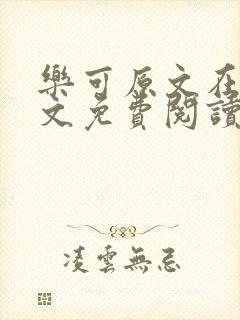 樂可原文在
文免費閱讀
凌雲無忌